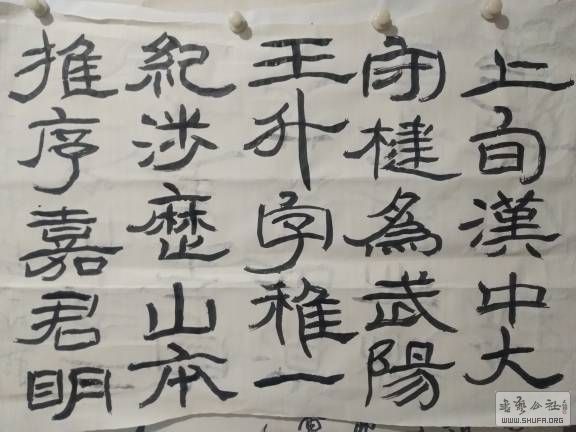 上旬漢中大
守楗為武陽
王升字稚一
紀涉歷山本
推序嘉君明
WWW.SHUFA.ORG